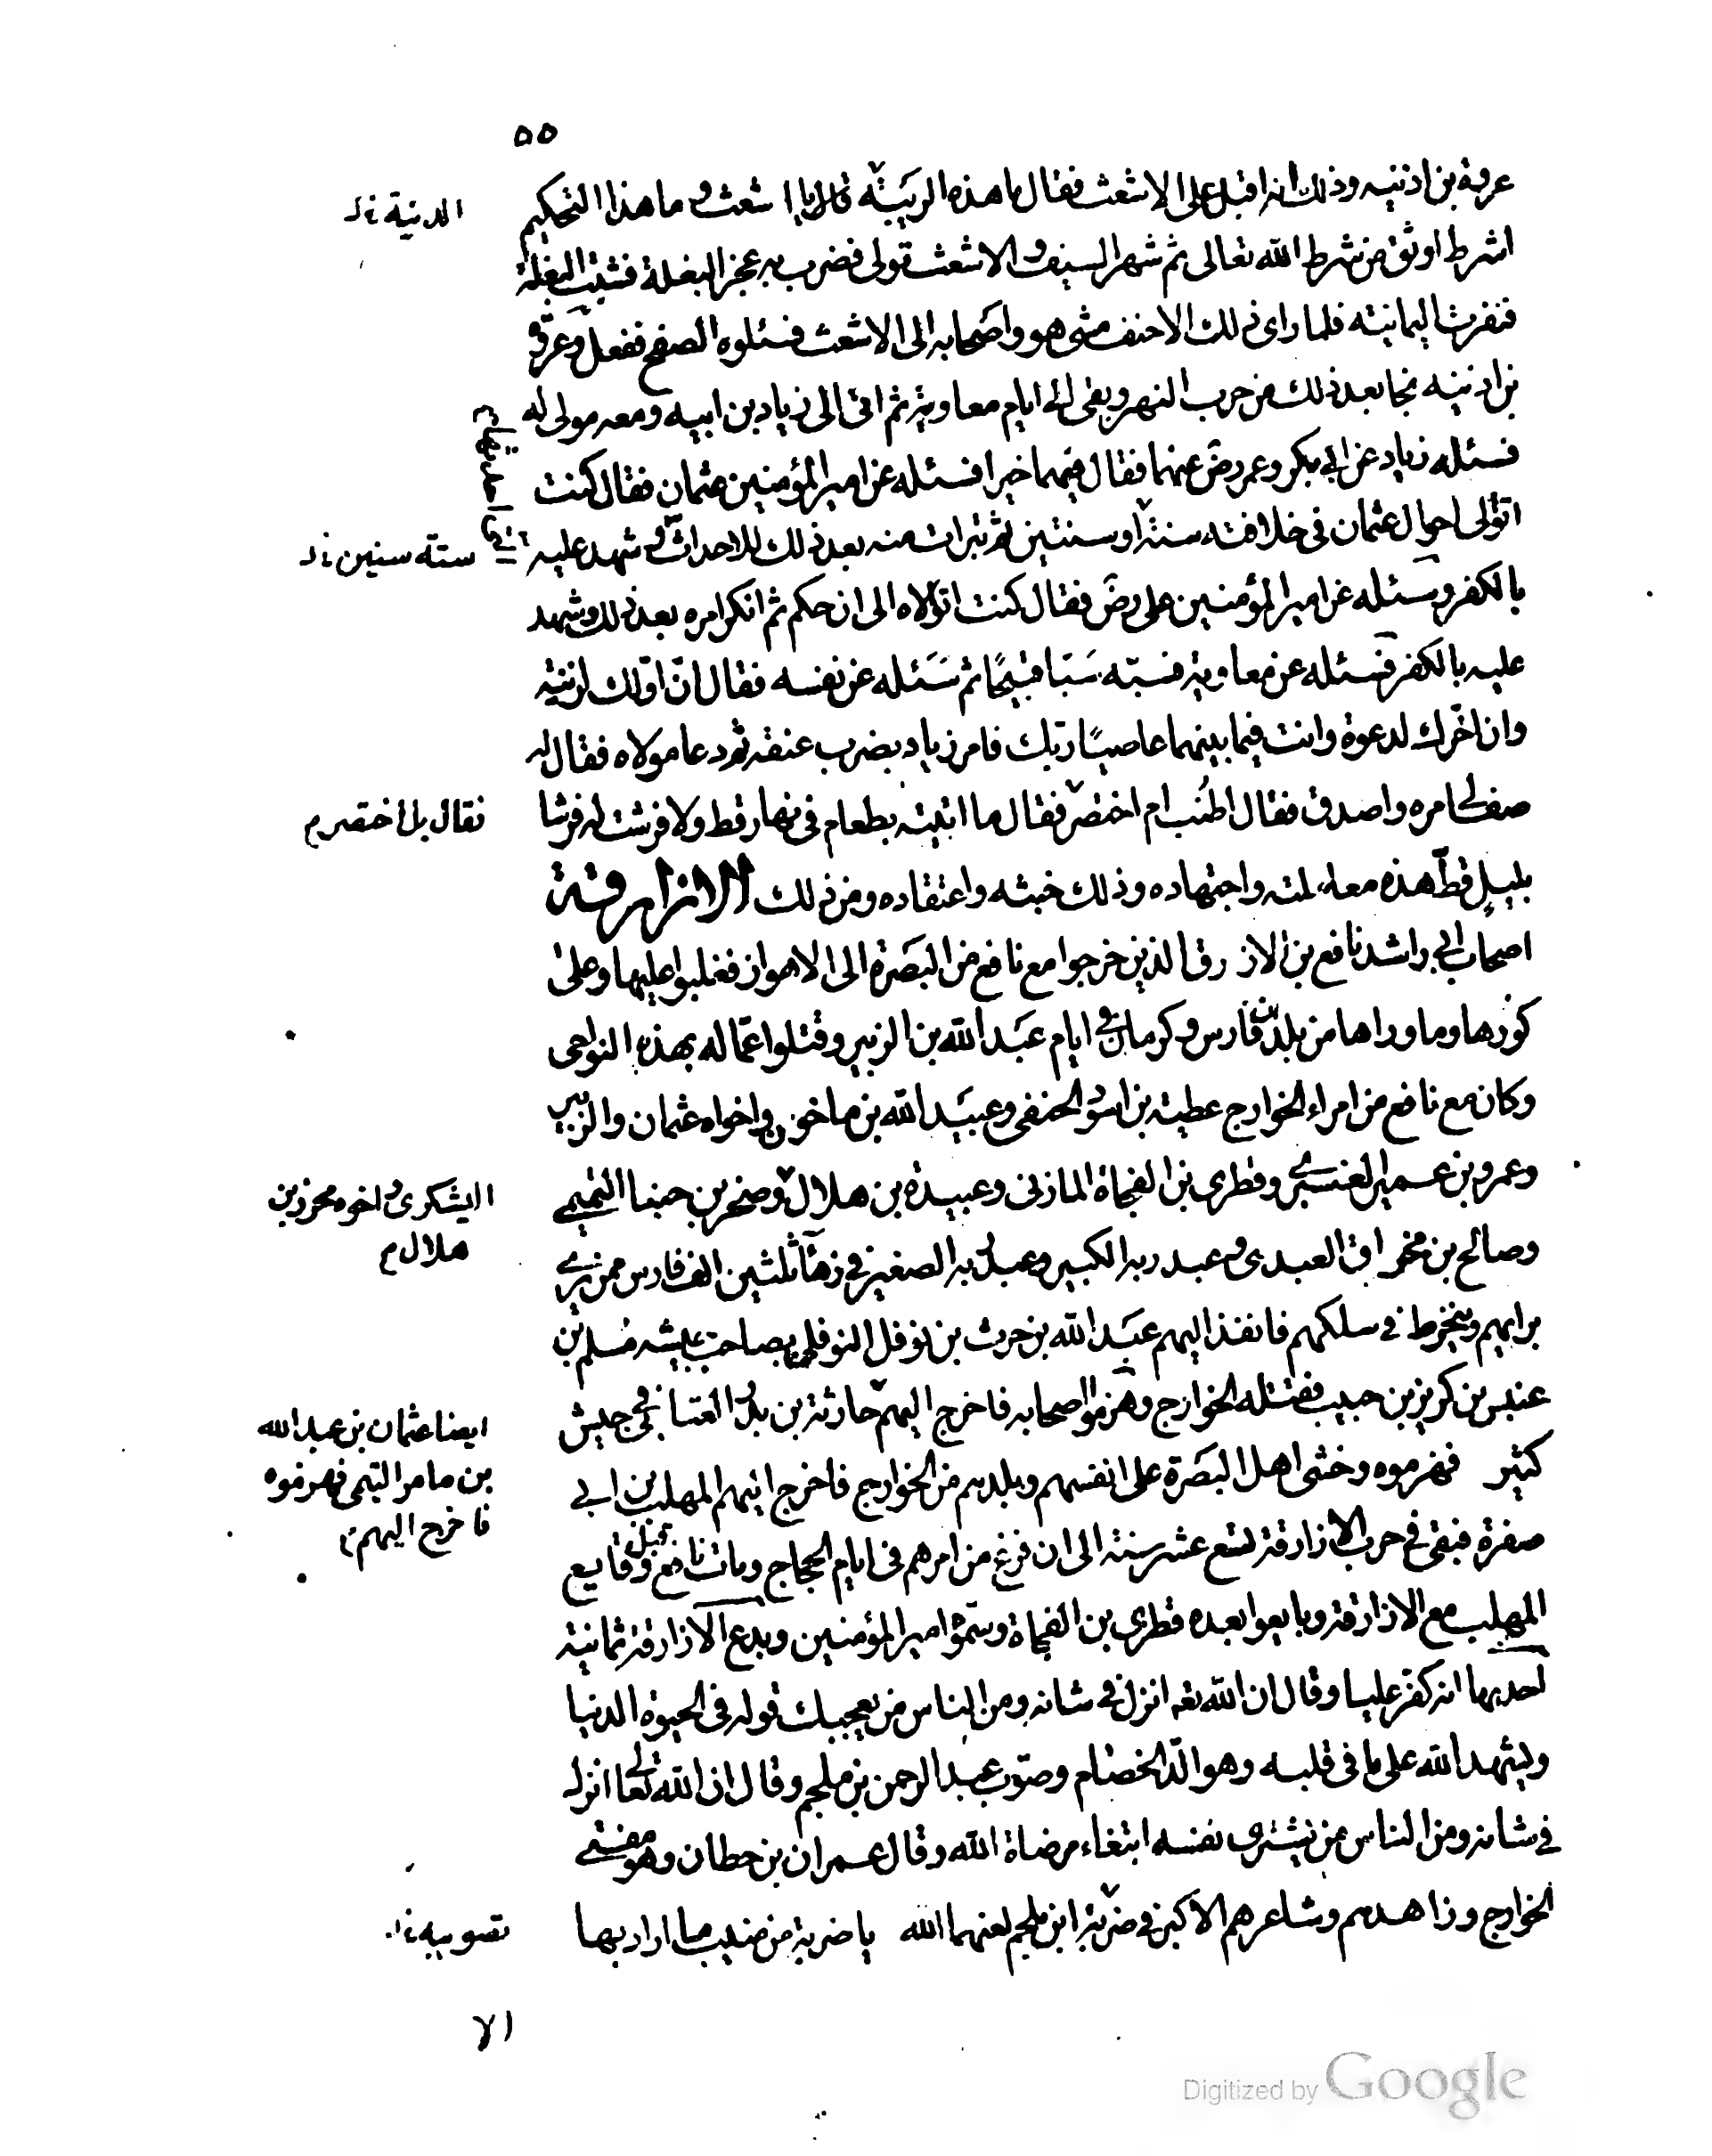 ٥٥
عروة بن اذينه وذلك انه اقبل على الاشعث فقال ما هذه الريبّة قال يا اشعث وما هذا التحكيم
الدنية نه
اشرط اوثق من شرط الله تعالى ثم شهر السيف والاشعث تولى فضرب به عجز البغلة فشبت البغلة
فنفرت اليمانية فلما راى ذلك الاحنف مشى هو واصحابه الى الاشعث فسئلوه الصفح ففعل وعروة
بن اذينه نجا بعد ذلك من حرب النهر وبقى الى ايام معاوية ثم اتى الى زياد بن ابيه ومعه مولى له
فسئله زياد عن ابى بكر وعمر رض عنهما فقال فيهما خيرا فسئله عن امير المؤمنين عثمان فقال كنت
اتولى احوال عثمان فى خلافته سنة او سنتين ثم تبرات منه بعد ذلك للاحداث وشهد عليه
ستة سنين نه
بالكفر وسئله عن امير المؤمنين على رض فقال كنت اتولاه الى ان حكم ثم انكر امره بعد ذلك وشهد
عليه بالكفر فسئله عن معاوية فسبّه سَبّا قبيحًا ثم سَئله عن نفسه فقال انّ اوّلك لزنية
وان اخّرك لدعوة وانت فيما بينهما عاصيًا ربّك فامر زياد بضرب عنقه ثم دعا مولاه فقال له
صف لى امره واصدق فقال اطنب ام اختصر فقال ما اتيته بطعام فى نهار قط ولا فرشت له فرشا
فقال بل اختصر م
بليلٍ قطّ هذه معاملته واجتهاده وذلك خبثه واعتقاده ومن ذلك الازارقة
اصحاب ابى راشد نافع بن الازرق الذين خرجوا مع نافع من البَصرة الى الاهواز فغلبوا عليها وعلى
كورها وما وراها من بلدان فارس وكرمان فى ايام عبَد الله بن الزبير وقتلوا عمّاله بهذه النواحى
وكان مع نافع من امراء الخوارج عطية بن اسود الحنفى وعبيَد الله بن ماخون واخواه عثمان والزبير
وعمرو بن عمير العنبرى وقطرى بن الفجاة المازنى وعبيدة بن هلال وصخر بن حبنا التميمى
اليشكرى واخوه محرز بن
هلال م
وصالح بن مخراق العبدى وعبد ربه الكبير وعبد ربه الصغير فى زهآ ثلثين الف فارس ممن يرى
برايهم وينخرط فى سلكهم فانفذ اليهم عبَد الله بن حرث بن نوفل النوفلى بصاحب جيشه مُسلم بن
عنبس بن كريز بن حبيب فقتله الخوارج وهزموا اصحابه فاخرج اليهم حارثة بن بدر العتابى فى جيش
ايضا عثمان بن عبد الله
بن مامر التيمى فهزموه
فاخرج اليهم
كثير فهزموه وخشى اهل البَصرة على انفسهم وبلدهم من الخوارج فاخرج اليهم المهلب بن ابى
صفرة فبقى فى حرب الازارقة تسع عشر سنة الى ان فرغ من امرهم فى ايام الحجاج ومات نافع قبل وقايع
المهلب مع الازارقة وبايعوا بعده قطرى بن الفجاة وسمّوه امير المؤمنين وبدع الازارقة ثمانية
احديها انه كفر عليا وقال ان الله تعه انزل فى شانه ومن الناس من يعجبك قوله فى الحيوة الدنيا
ويشهد الله على ما فى قلبه وهو الدّ الخصام وصوّب عبد الرحمن بن ملجم وقال ان الله تعالى انزل
فى شانه ومن الناس من يشترى نفسه ابتغاء مرضاة الله وقال عمران بن حطان وهو مفتى
الخوارج وزاهدهم وشاعرهم الاكبر فى ضربة ابن ملجم لعنهما الله يا ضربة من منيب ما اراد بها
تصويبه نه
٧١
Digitized by Google